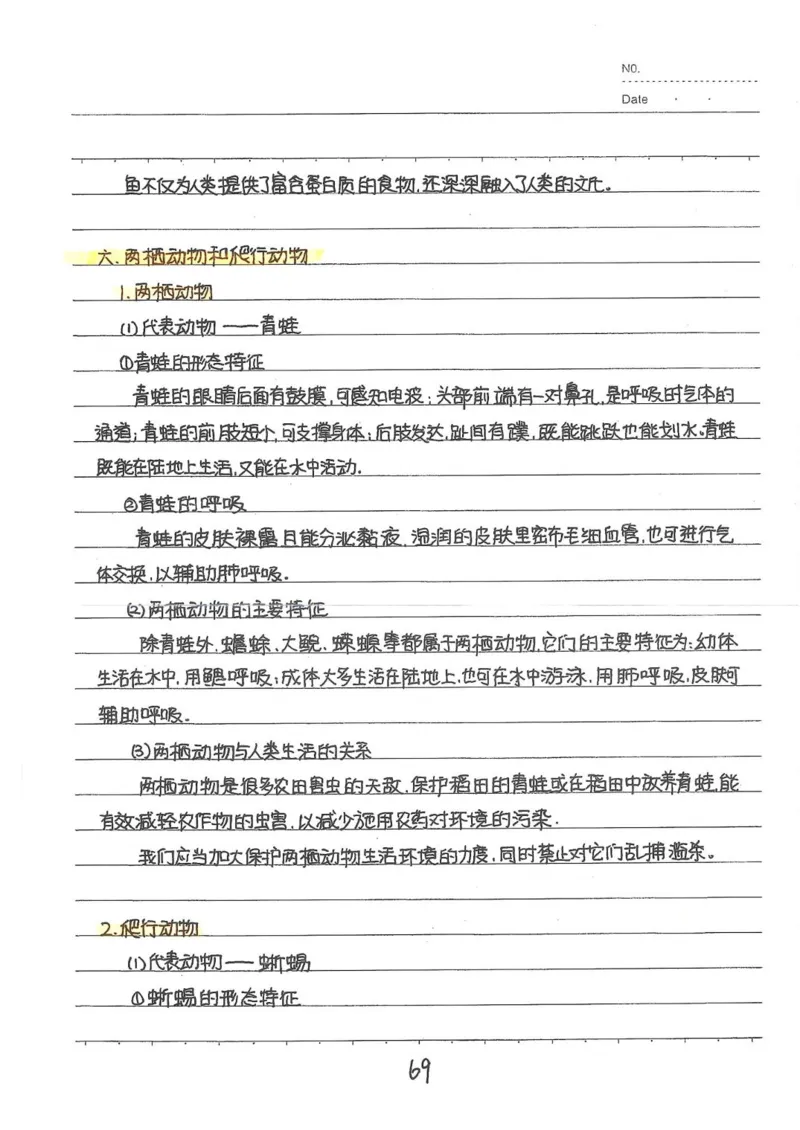 NO.
Date
鱼不仅为人类提供了富含蛋白质的食物,还深深融入了人类的文化。
六.两栖动物和爬行动物
1.两栖动物
(1)代表动物——青蛙
①青蛙的形态特征
青蛙的眼睛后面有鼓膜,可感知电波;头部前端有一对鼻孔,是呼吸时气体的
通道;青蛙的前肢短个,可支撑身体;后肢发达,趾间有蹼,既能跳跃也能划水。青蛙
既能在陆地上生活,又能在水中活动.
②青蛙的呼吸
青蛙的皮肤裸露且能分泌黏液,湿润的皮肤里密布毛细血管,也可进行气
体交换,以辅助肺呼吸。
(2)两栖动物的主要特征
除青蛙外,蟾蜍、大鲵、蝾螈等都属于两栖动物,它们的主要特征为:幼体
生活在水中,用鳃呼吸;成体大多生活在陆地上,也可在水中游泳,用肺呼吸,皮肤可
辅助呼吸。
(3)两栖动物与人类生活的关系
两栖动物是很多农田害虫的天敌,保护稻田的青蛙或在稻田中放养青蛙,能
有效减轻农作物的虫害,以减少施用农药对环境的污染.
我们应当加大保护两栖动物生活环境的力度,同时禁止对它们乱捕滥杀。
2.爬行动物
(1)代表动物——蜥蜴
①蜥蜴的形态特征
69